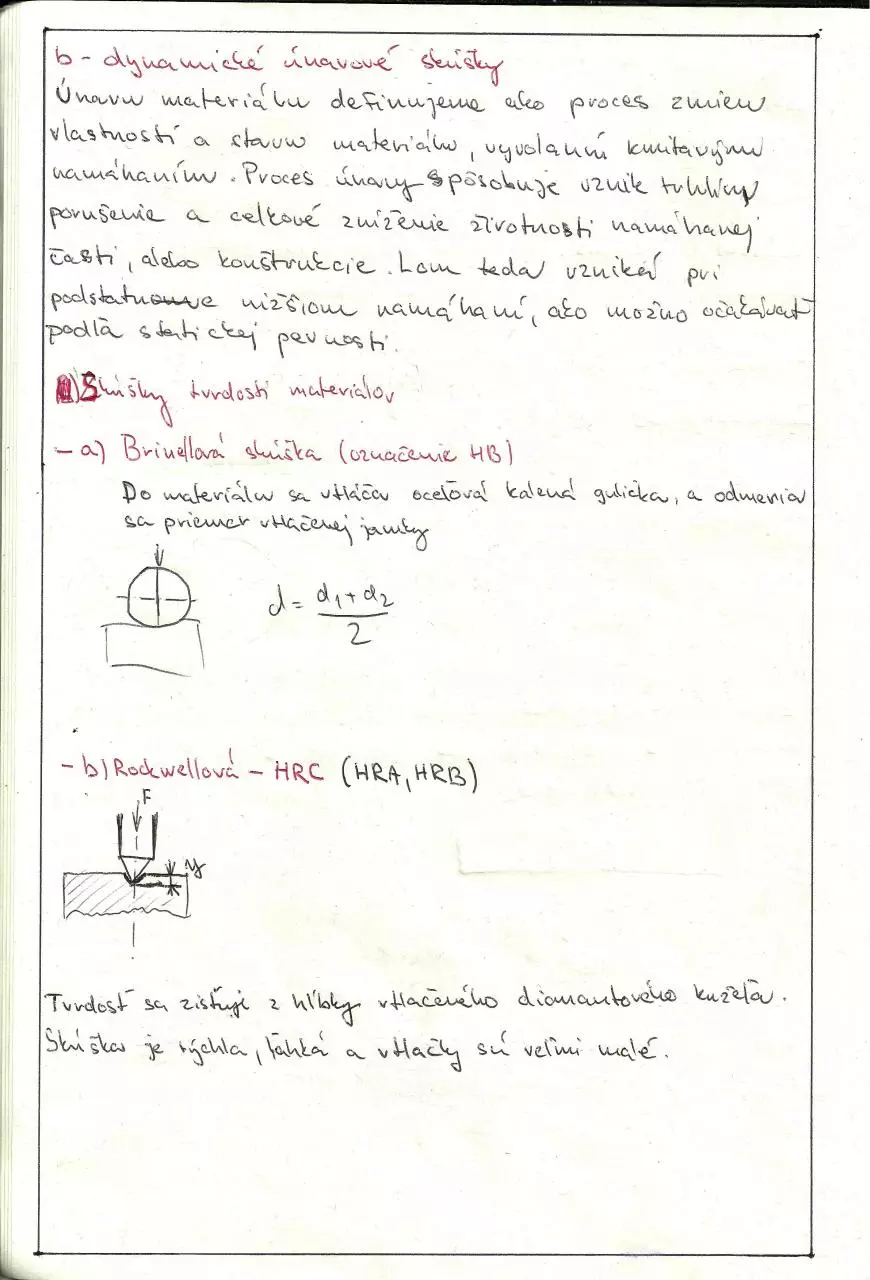 b - dynamické únavové skúšky
Únavu materiálu definujeme ako proces zmien
vlastností a stavu materiálu, vyvolanú kmitavým
namáhaním. Proces únavy spôsobuje vznik trhliny
porušenie a celkové zníženie životnosti namáhanej
časti, alebo konštrukcie. Lom teda vzniká pri
podstatne nižšiom namáhaní, ako možno očakávať
podľa statickej pevnosti.
Skúšky tvrdosti materiálov
- a) Brinellová skúška (označenie HB)
Do materiálu sa vtláča oceľová kalená gulička, a odmeria
sa priemer vtlačenej jamky
d = d1 + d2
2
- b) Rockwellová - HRC (HRA, HRB)
F
y
Tvrdosť sa zisťuje z hĺbky vtlačeného diamantového kužeľa.
Skúška je rýchla, ľahká a vtlačky sú veľmi malé.